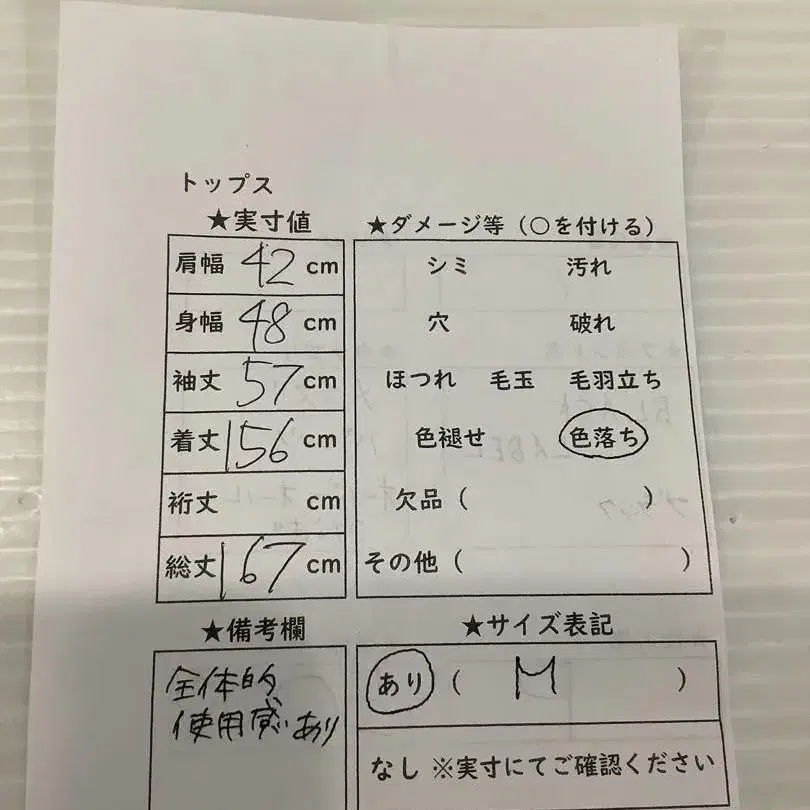 トップス
★実寸値
肩幅 42 cm
身幅 48 cm
袖丈 57 cm
着丈 156 cm
裄丈 cm
総丈 167 cm
★ダメージ等（○を付ける）
シミ 汚れ
穴 破れ
ほつれ 毛玉 毛羽立ち
色褪せ 色落ち
欠品（ ）
その他（ ）
★備考欄
全体的
使用感あり
★サイズ表記
あり（ M ）
なし ※実寸にてご確認ください